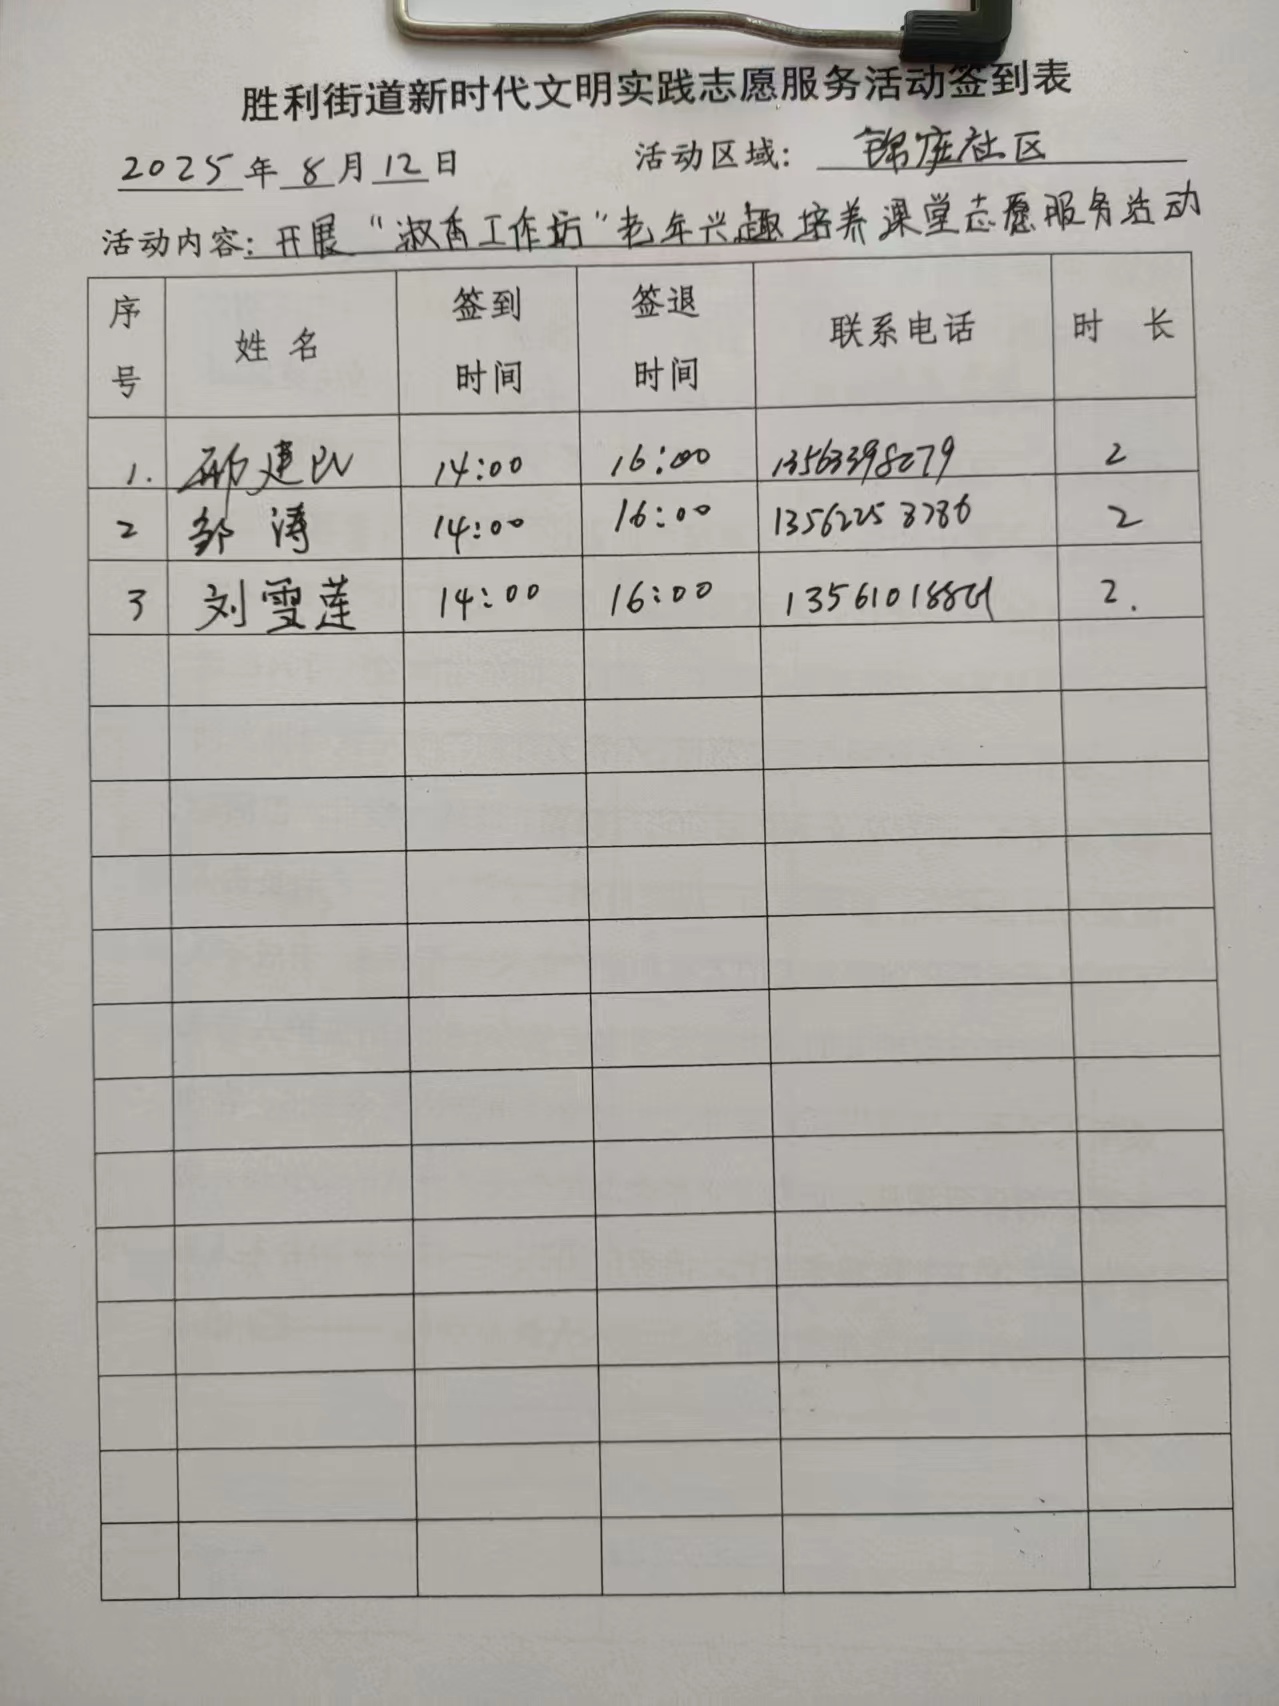 胜利街道新时代文明实践志愿服务活动签到表
2025年8月12日 活动区域：锦庭社区
活动内容：开展“淑香工作坊”老年兴趣培养课堂志愿服务活动
序号 姓名 签到时间 签退时间 联系电话 时长
1. 建民 14:00 16:00 13563398279 2
2 邹涛 14:00 16:00 13562253786 2
3 刘雪莲 14:00 16:00 2.